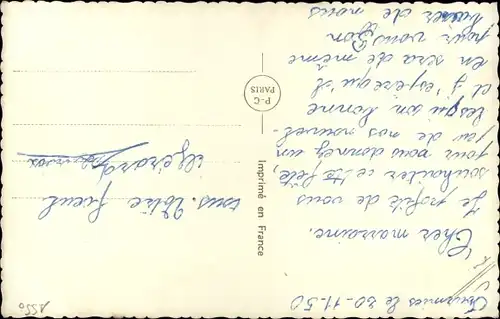 Fourmies le 20-11-50
Cher marraine.
Je profite de vous
souhaiter ce tte fête,
pour vous donnez un
peu de nos nouvel-
les qui son bonne
et j'espere qu'il
en sera de même
pour vous. Bon
baiser de nous
tous. Votre fieul
Gérard
Imprimé en France
P.-C
PARIS